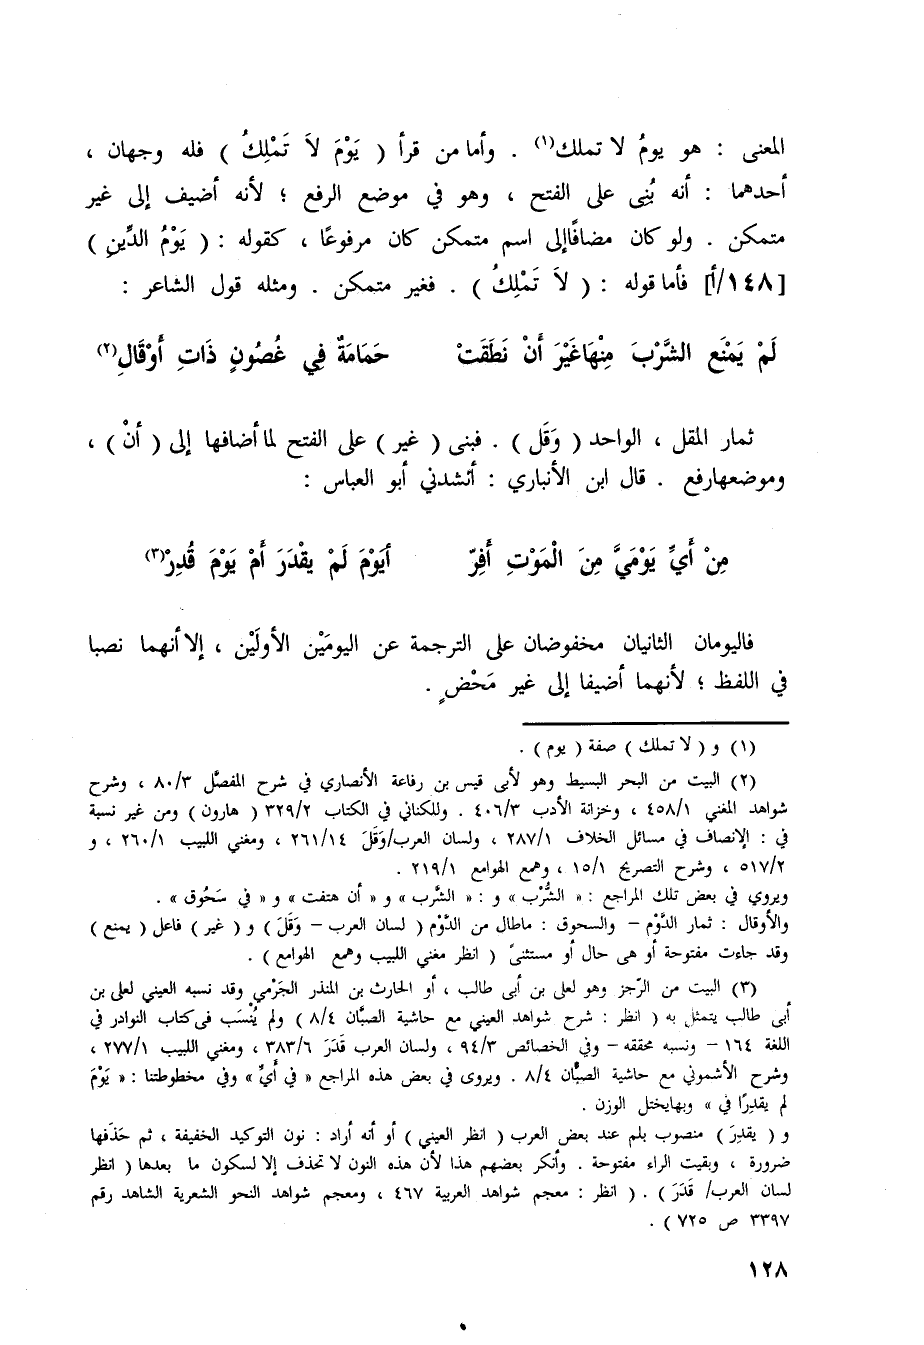 المعنى : هو يومُ لا تملك(١) . وأما من قرأ ( يَوْمَ لاَ تَمْلِكُ ) فله وجهان ،
أحدهما : أنه بُنِى على الفتح ، وهو في موضع الرفع ؛ لأنه أضيف إلى غير
متمكن . ولو كان مضافًاإلى اسم متمكن كان مرفوعًا ، كقوله : ( يَوْمُ الدِّينِ )
[١٤٨/أ] فأما قوله : ( لاَ تَمْلِكُ ) . فغير متمكن . ومثله قول الشاعر :
لَمْ يَمْنَعِ الشَّرْبَ مِنْهَاغَيْرَ أَنْ نَطَقَتْ حَمَامَةٌ فِي غُصُونٍ ذَاتِ أَوْقَالِ(٢)
ثمار المقل ، الواحد ( وَقَل ) . فبنى ( غير ) على الفتح لما أضافها إلى ( أنْ ) ،
وموضعهارفع . قال ابن الأنباري : أنشدني أبو العباس :
مِنْ أَيِّ يَوْمَيَّ مِنَ الْمَوْتِ أَفِرّ أَيَوْمَ لَمْ يقْدَرَ أَمْ يَوْمَ قُدِرْ(٣)
فاليومان الثانيان مخفوضان على الترجمة عن اليومَيْن الأولَيْن ، إلا أنهما نصبا
في اللفظ ؛ لأنهما أضيفا إلى غير مَحْضٍ .
(١) و ( لا تملك ) صفة ( يوم ) .
(٢) البيت من البحر البسيط وهو لأبى قيس بن رفاعة الأنصاري في شرح المفصَّل ٨٠/٣ ، وشرح
شواهد المغني ٤٥٨/١ ، وخزانة الأدب ٤٠٦/٣ . وللكناني في الكتاب ٣٢٩/٢ ( هارون ) ومن غير نسبة
في : الإنصاف في مسائل الخلاف ٢٨٧/١ ، ولسان العرب/وَقَلَ ٢٦١/١٤ ، ومغني اللبيب ٢٦٠/١ ، و
٥١٧/٢ ، وشرح التصريح ١٥/١ ، وهمع الهوامع ٢١٩/١ .
ويروي في بعض تلك المراجع : « الشُّرْب » و : « الشَّرب » و « أن هتفت » و « في سَحُوق » .
والأوقال : ثمار الدَّوْم – والسحوق : ماطال من الدَّوْم ( لسان العرب – وَقَلَ ) و ( غير ) فاعل ( يمنع )
وقد جاءت مفتوحة أو هى حال أو مستثنىً ( انظر مغني اللبيب وهمع الهوامع ) .
(٣) البيت من الرَّجز وهو لعلى بن أبى طالب ، أو الحارث بن المنذر الجَرْمي وقد نسبه العيني لعلى بن
أبى طالب يتمثل به ( انظر : شرح شواهد العيني مع حاشية الصبَّان ٨/٤ ) ولم يُنْسَب فى كتاب النوادر في
اللغة ١٦٤ – ونسبه محققه – وفي الخصائص ٩٤/٣ ، ولسان العرب قَدَرَ ٣٨٣/٦ ، ومغني اللبيب ٢٧٧/١ ،
وشرح الأشموني مع حاشية الصبَّان ٨/٤ . ويروى في بعض هذه المراجع « في أَيِّ » وفي مخطوطتنا : « يَوْمَ
لم يقدرًا في » وبهايختل الوزن .
و ( يقدرَ ) منصوب بلم عند بعض العرب ( انظر العيني ) أو أنه أراد : نون التوكيد الخفيفة ، ثم حَذَفها
ضرورة ، وبقيت الراء مفتوحة . وأنكر بعضهم هذا لأن هذه النون لا تحذف إلا لسكون ما بعدها ( انظر
لسان العرب/ قَدَرَ ) . ( انظر : معجم شواهد العربية ٤٦٧ ، ومعجم شواهد النحو الشعرية الشاهد رقم
٣٣٩٧ ص ٧٢٥ ) .
١٢٨